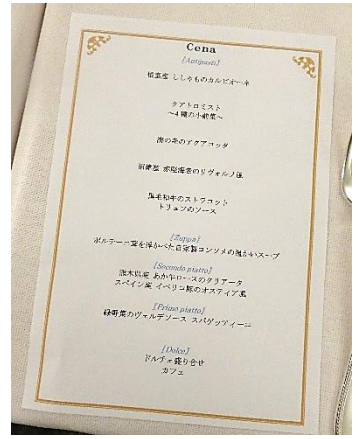 Cena
[Antipasti]
ししゃものカルピオーネ
クアトロミスト
～4種の小前菜～
海の幸のアクアコッタ
赤座海老のリヴォルノ風
黒毛和牛のストラコット
トリュフのソース
[Zuppa]
ポルチーニ茸を浮かべた自家製コンソメの温かいスープ
[Secondo piatto]
熊本県産 あか牛ロースのタリアータ
スペイン産 イベリコ豚のオスティア風
[Primo piatto]
緑野菜のヴェルデソース スパゲッティーニ
[Dolce]
ドルチェ盛り合せ
カフェ